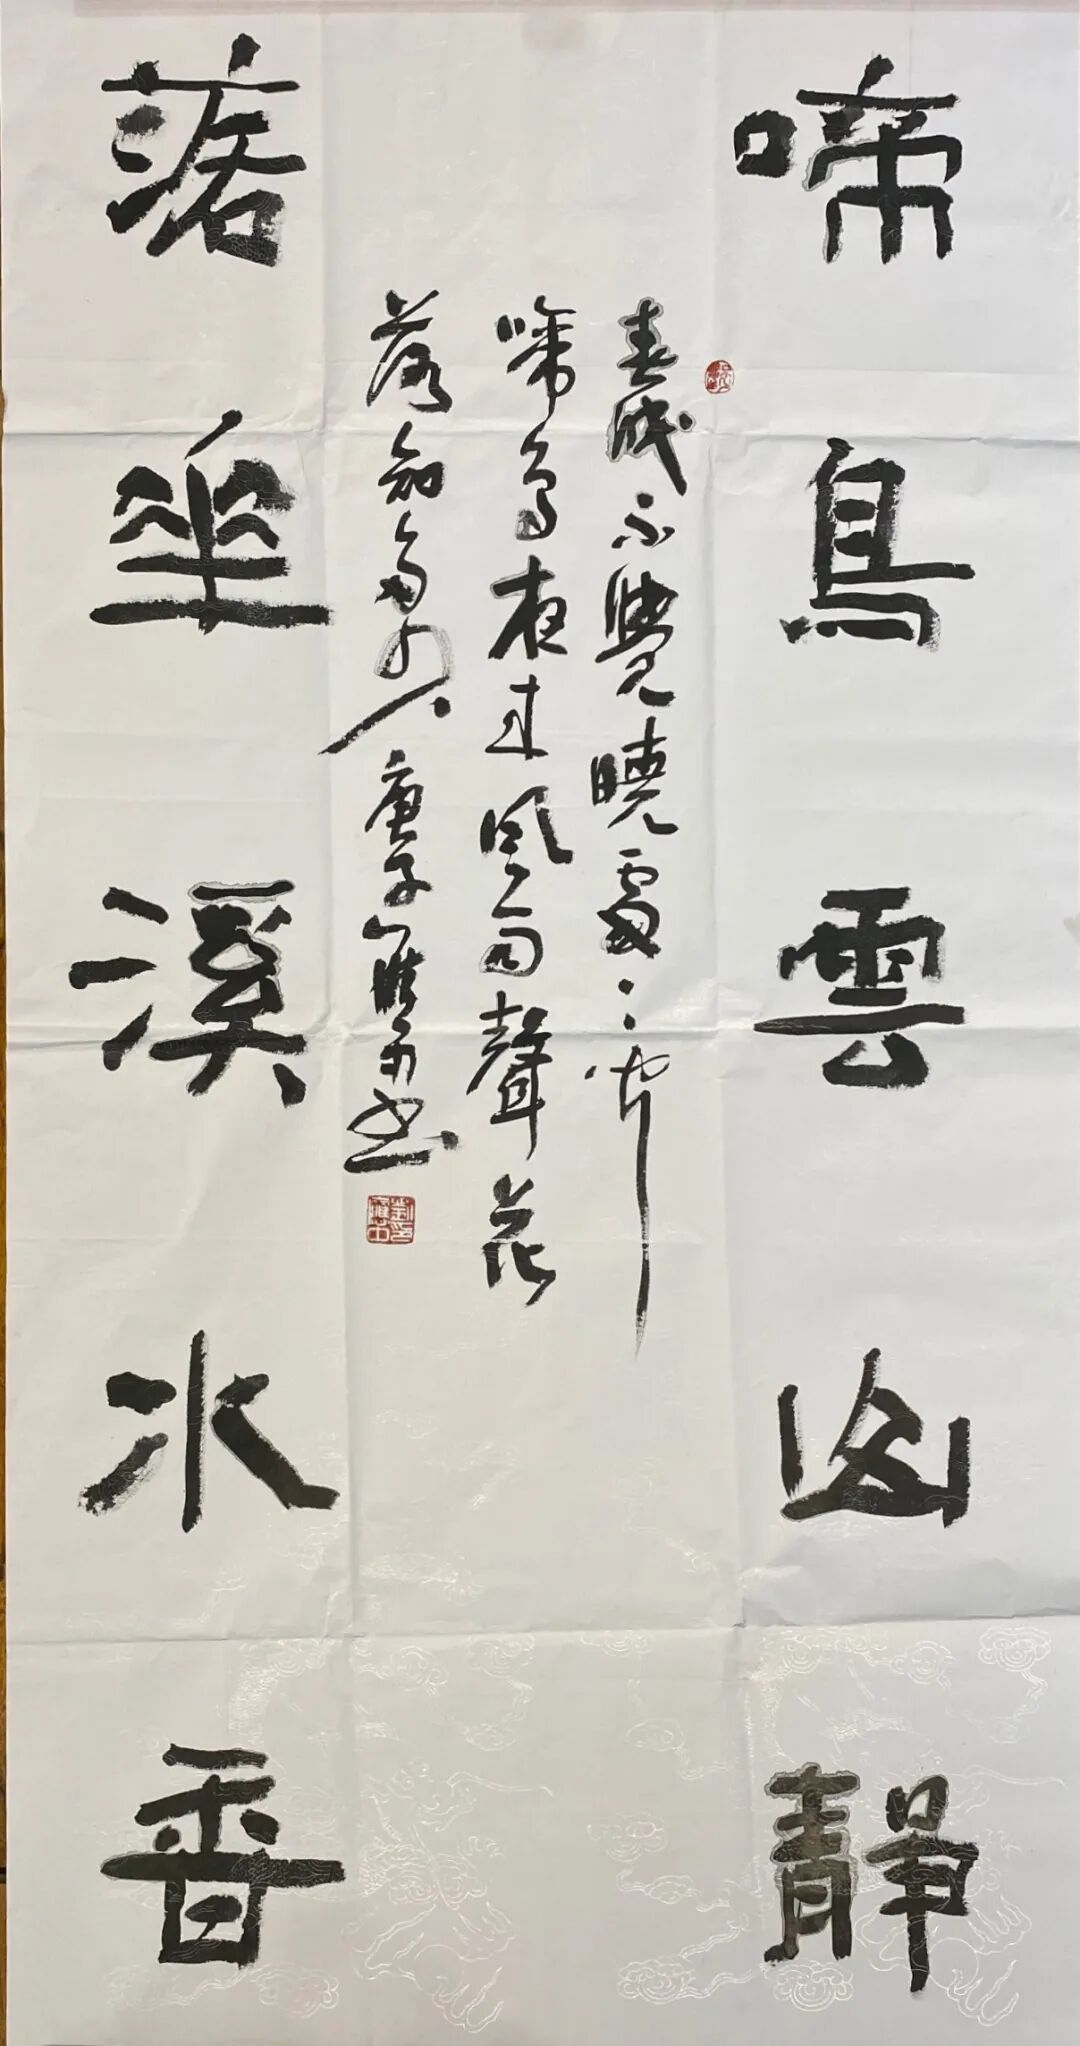 啼鳥雲山靜
春眠不覺曉處〻聞
啼鳥夜來風雨聲花
落知多少庚子書
落華溪水香